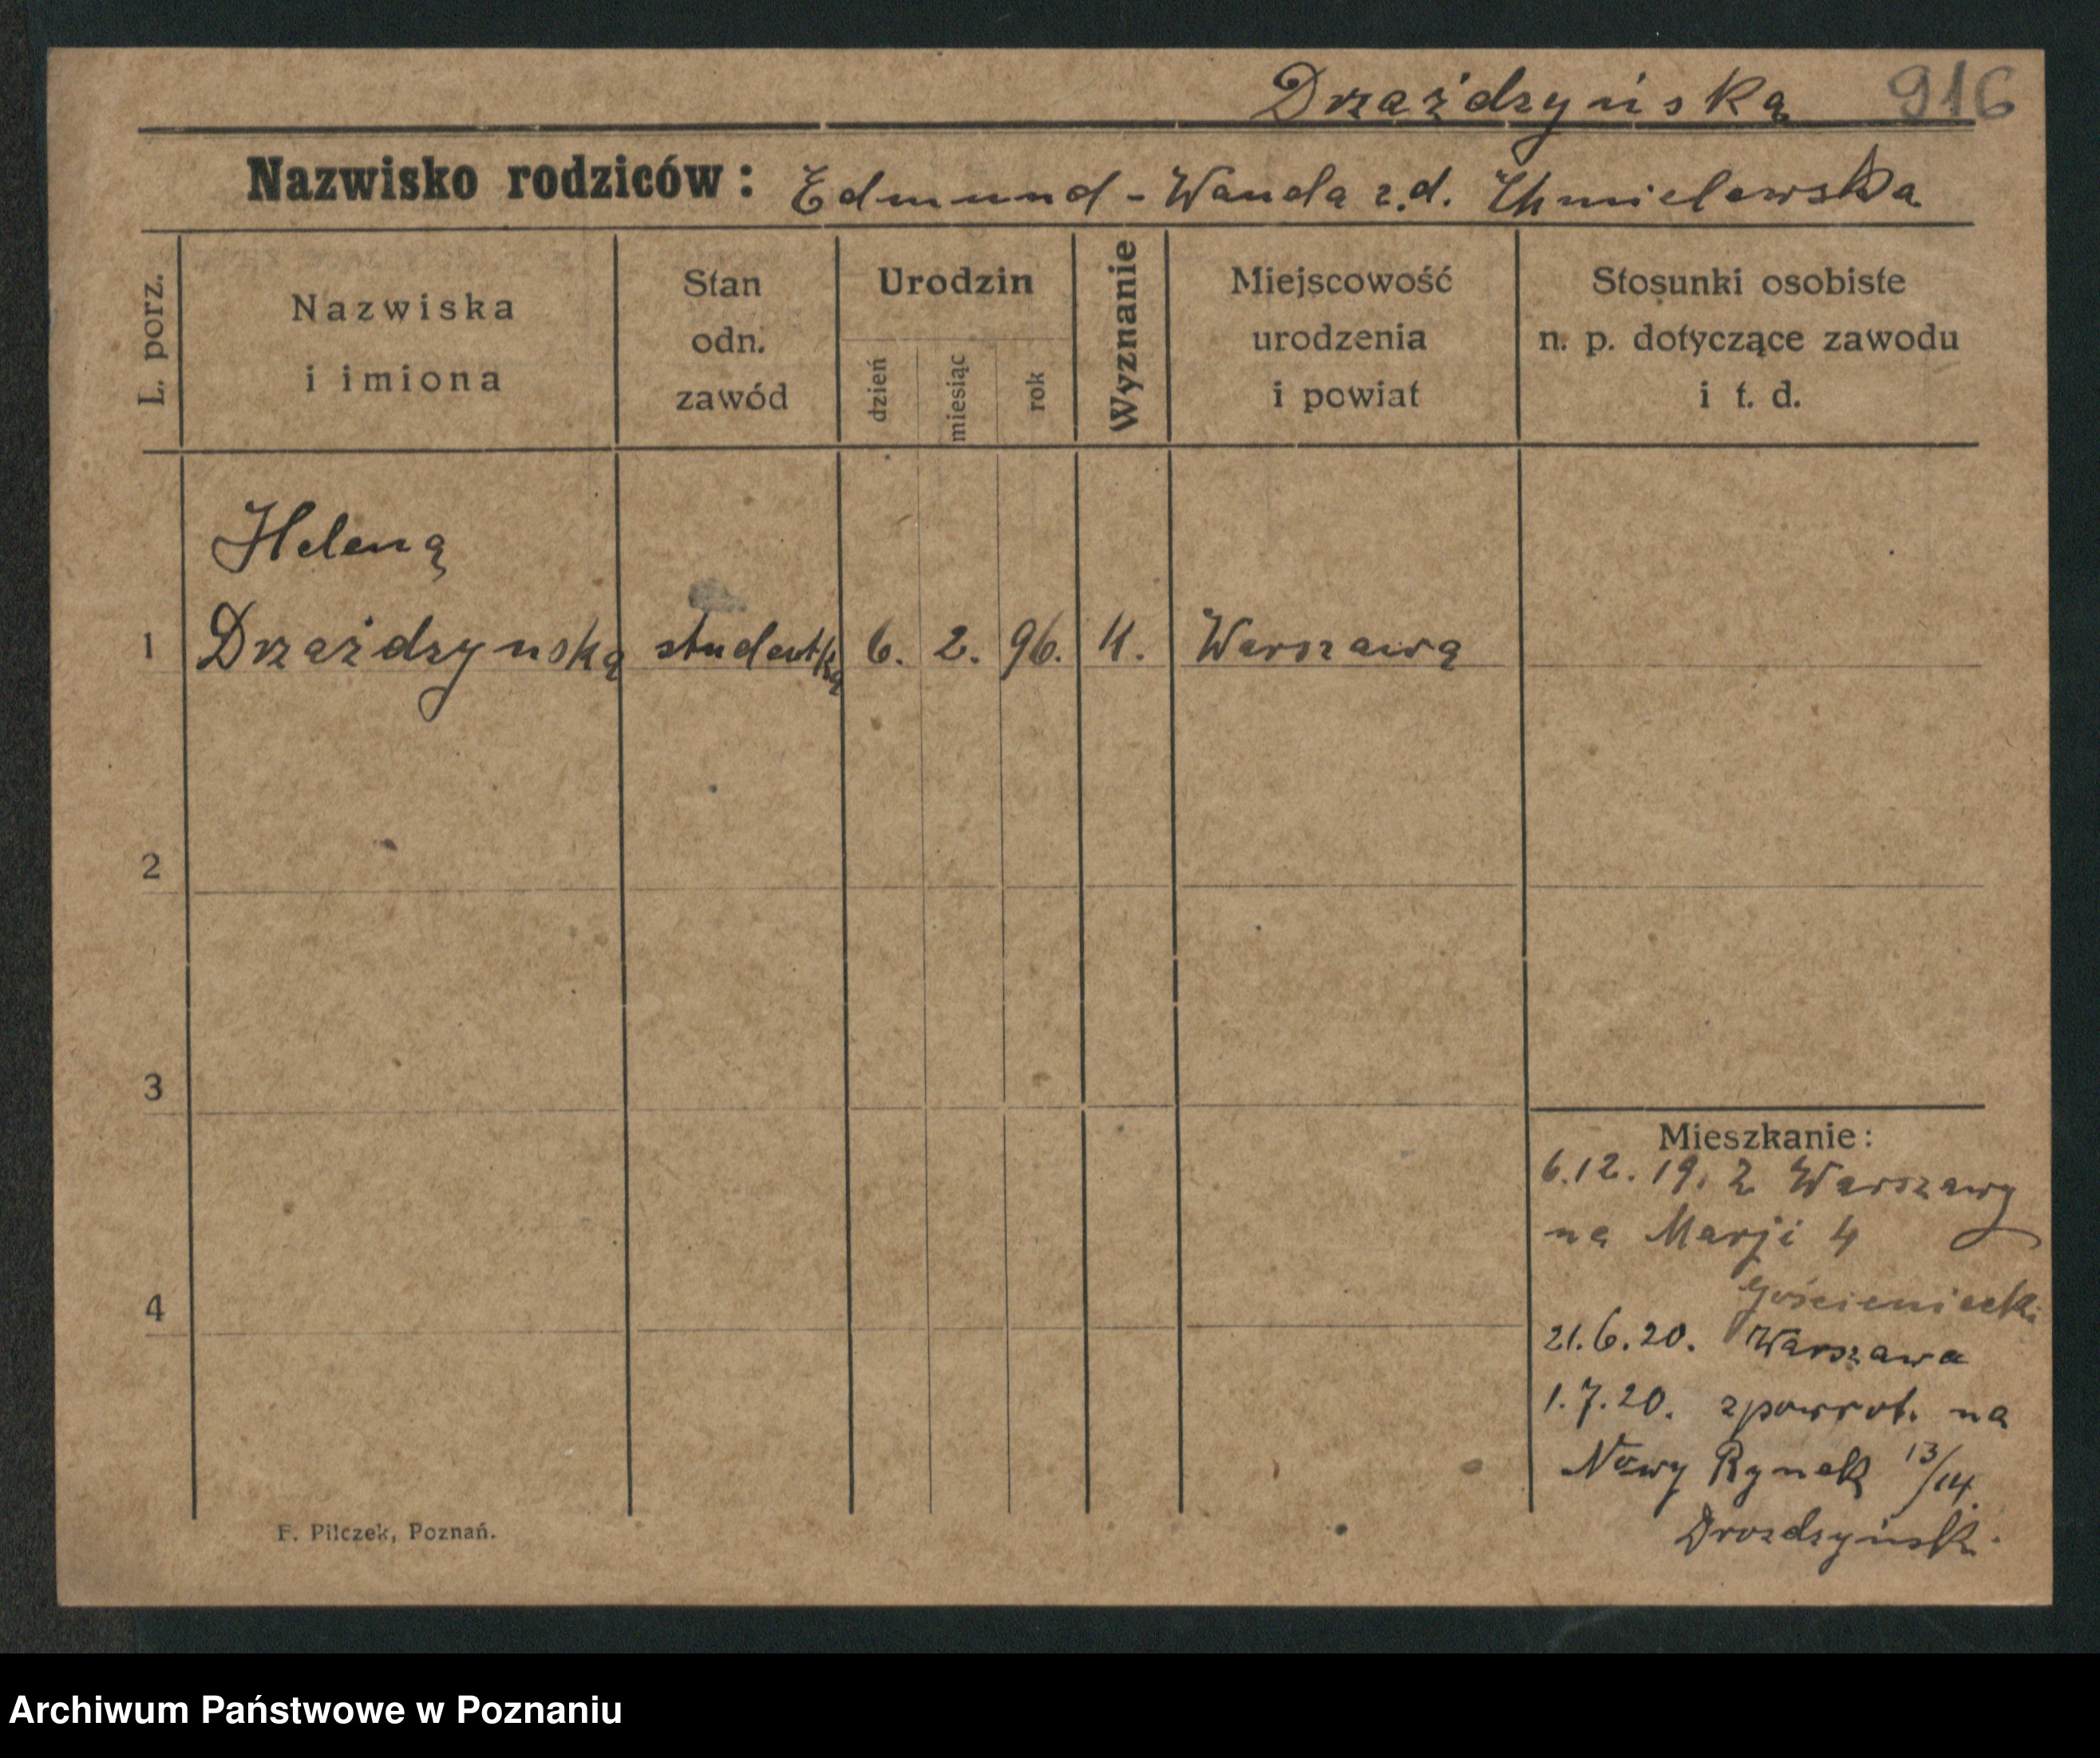 Drzażdzyńską 916
Nazwisko rodziców: Edmund - Wanda z.d. Chmielewska
L. porz.
Nazwiska
i imiona
Stan
odn.
zawód
Urodzin
dzień
miesiąc
rok
Wyznanie
Miejscowość
urodzenia
i powiat
Stosunki osobiste
n. p. dotyczące zawodu
i t. d.
Heleną
1 Drzażdzynską studentką 6. 2. 96. K. Warszawą
2
3
4
Mieszkanie:
6.12.19. z Warszawy
na Marji 4
21.6.20. Warszawa
1.7.20. zpowrot. na
Nowy Rynek 13/14.
Drozdzyńsk.
F. Pilczek, Poznań.
Archiwum Państwowe w Poznaniu